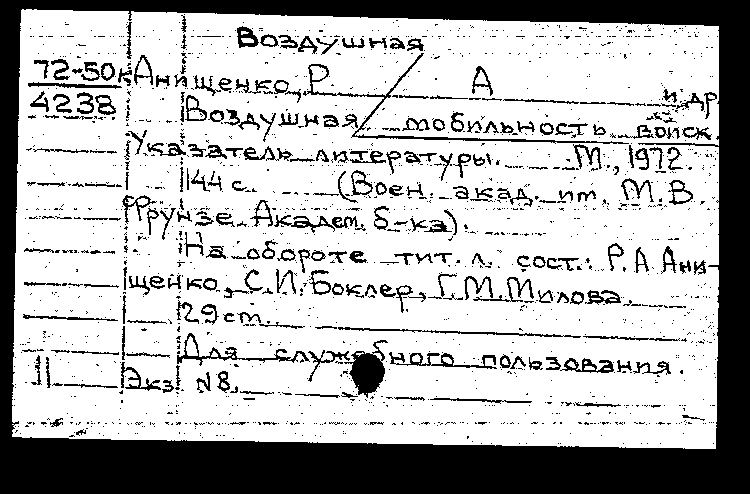 Воздушная
72-50к Анищенко, Р А и др
4238 Воздушная мобильность войск.
Указатель литературы. М., 1972.
144 с. (Воен. акад. им. М.В.
Фрунзе. Академ. б-ка).
На обороте тит. л. сост.: Р.А Ани-
щенко, С.И. Боклер, Г.М. Милова.
29 ст.
Для служебного пользования.
11 Экз N8.